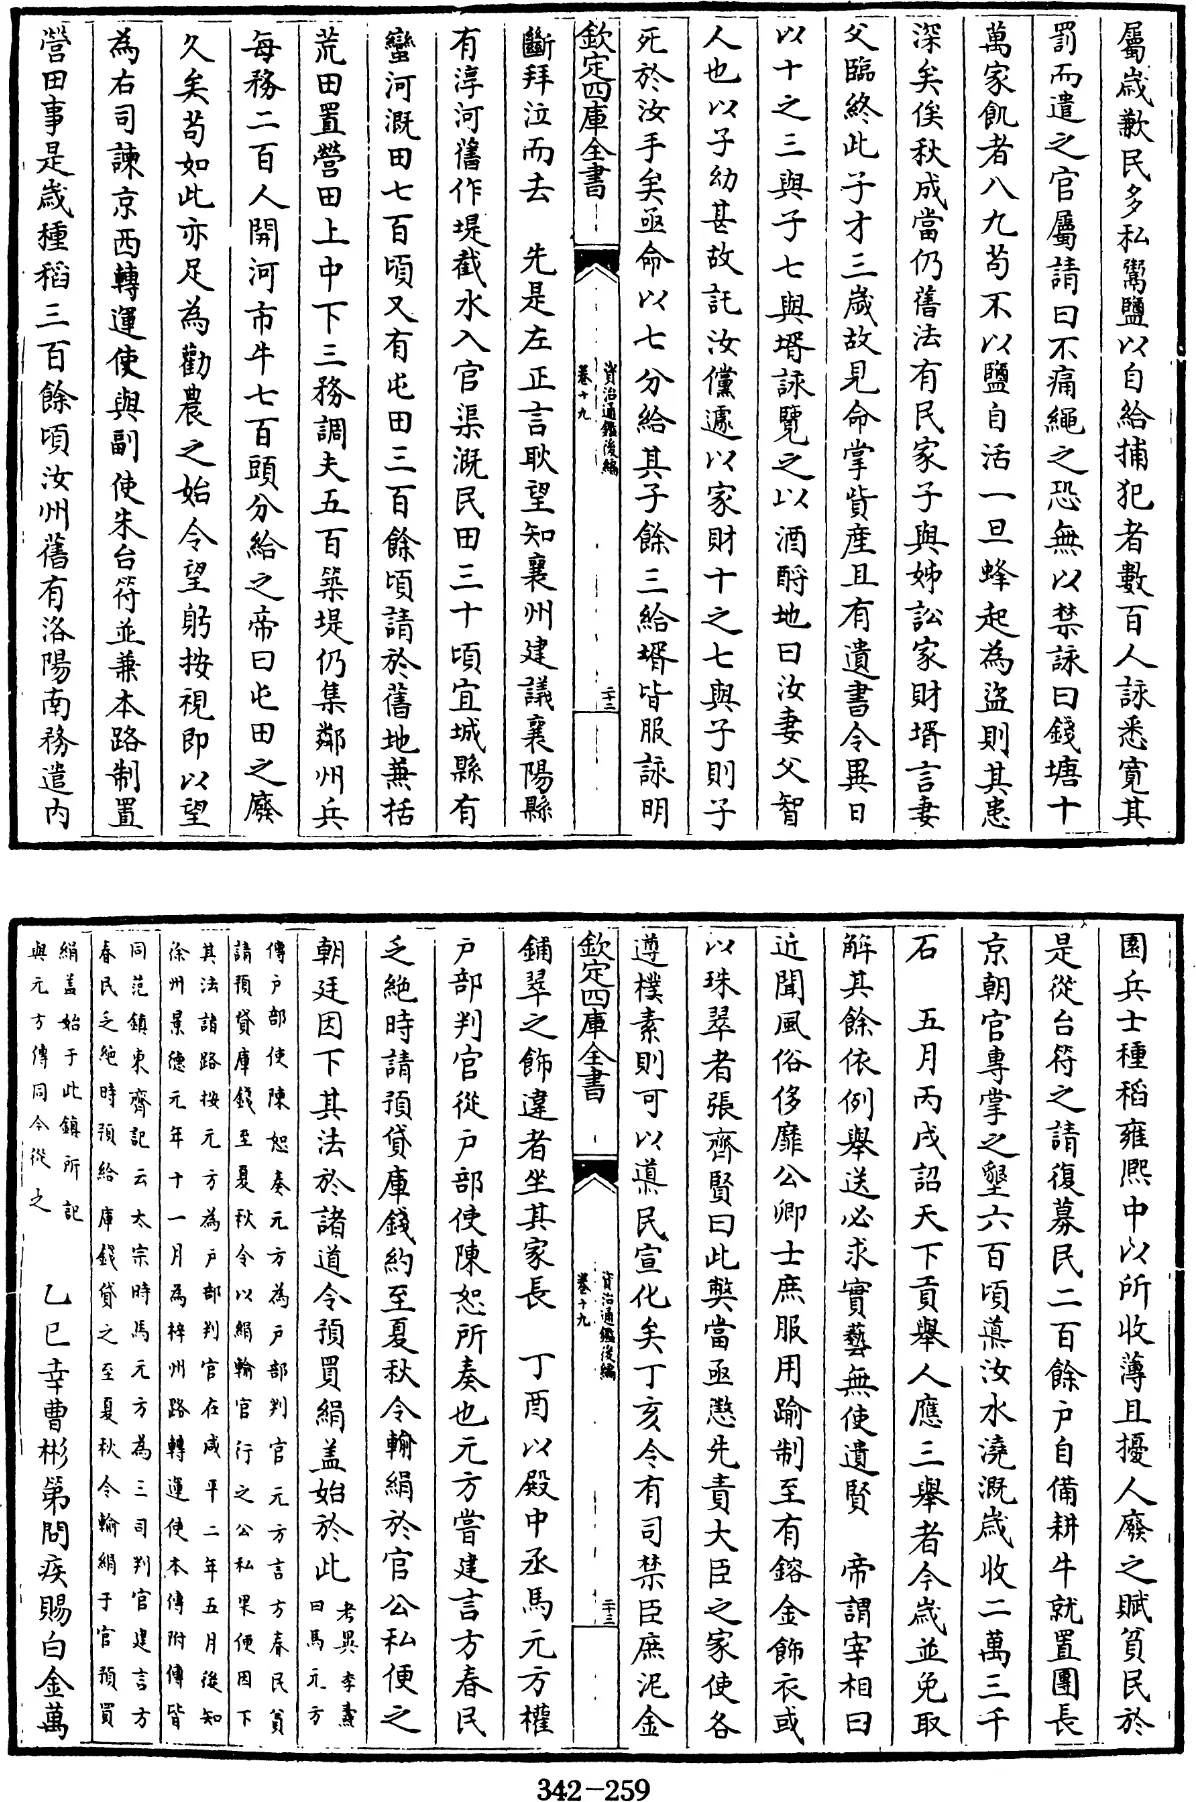 屬歲歉民多私鬻鹽以自給捕犯者數百人詠悉寛其
罰而遣之官屬請曰不痛繩之恐無以禁詠曰錢塘十
萬家飢者八九苟不以鹽自活一旦蜂起為盜則其患
深矣俟秋成當仍舊法有民家子與姊訟家財壻言妻
父臨終此子才三歲故見命掌貲產且有遺書令異日
以十之三與子七與壻詠覽之以酒酹地曰汝妻父智
人也以子幼甚故託汝儻遽以家財十之七與子則子
死於汝手矣亟命以七分給其子餘三給壻皆服詠明
欽定四庫全書
資治通鑑後編
卷十九
二十二
斷拜泣而去　先是左正言耿望知襄州建議襄陽縣
有淳河舊作堤截水入官渠溉民田三十頃宜城縣有
蠻河溉田七百頃又有屯田三百餘頃請於舊地兼括
荒田置營田上中下三務調夫五百築堤仍集鄰州兵
每務二百人開河市牛七百頭分給之帝曰屯田之廢
久矣苟如此亦足為勸農之始令望躬按視即以望
為右司諫京西轉運使與副使朱台符並兼本路制置
營田事是歲種稻三百餘頃汝州舊有洛陽南務遣內
園兵士種稻雍熙中以所收薄且擾人廢之賦貧民於
是從台符之請復募民二百餘户自備耕牛就置團長
京朝官專掌之墾六百頃導汝水澆溉歲收二萬三千
石　五月丙戌詔天下貢舉人應三舉者今歲並免取
解其餘依例舉送必求實藝無使遺賢　帝謂宰相曰
近聞風俗侈靡公卿士庶服用踰制至有鎔金飾衣或
以珠翠者張齊賢曰此弊當亟懲先責大臣之家使各
遵樸素則可以導民宣化矣丁亥令有司禁臣庶泥金
欽定四庫全書
資治通鑑後編
卷十九
二十三
鋪翠之飾違者坐其家長　丁酉以殿中丞馬元方權
户部判官從户部使陳恕所奏也元方嘗建言方春民
乏絶時請預貸庫錢約至夏秋令輸絹於官公私便之
朝廷因下其法於諸道令預買絹盖始於此考異李燾
曰馬元方
傳户部使陳恕奏元方為户部判官元方言方春民貧
請預貸庫錢至夏秋令以絹輸官行之公私果便因下
其法諸路按元方為户部判官在咸平二年五月後知
徐州景德元年十一月為梓州路轉運使本傳附傳皆
同范鎮東齊記云太宗時馬元方為三司判官建言方
春民乏絶時預給庫錢貸之至夏秋令輸絹于官預買
絹盖始于此鎮所記
與元方傳同今從之　乙巳幸曹彬第問疾賜白金萬
342-259